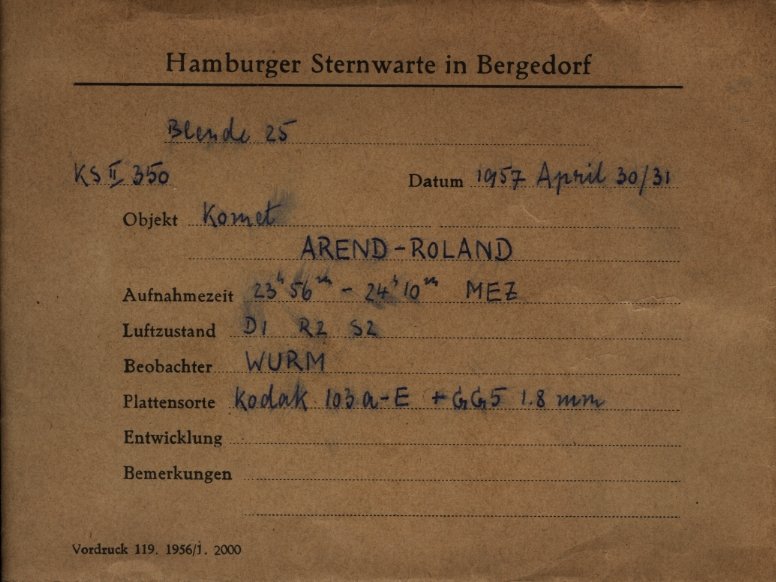 Hamburger Sternwarte in Bergedorf
Blende 25
KS II 350 Datum 1957 April 30/31
Objekt Komet
AREND-ROLAND
Aufnahmezeit 23h 56m - 24h 10m MEZ
Luftzustand D1 R2 S2
Beobachter WURM
Plattensorte Kodak 103a-E + GG5 1.8 mm
Entwicklung
Bemerkungen
Vordruck 119. 1956/1. 2000